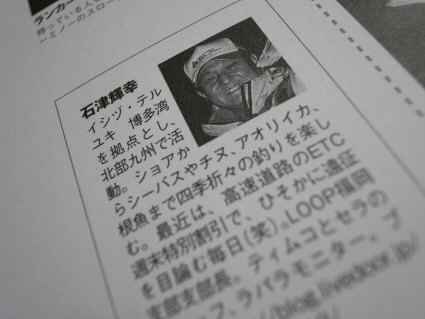 ランカー
待っている人
ーミノーのスロー
石津輝幸
イシヅ・テル
ユキ 博多湾
を拠点とし、
北部九州で活
動。ショアか
らシーバスやチヌ、アオリイカ、
根魚まで四季折々の釣りを楽し
む。最近は、高速道路のETC
週末特別割引で、ひそかに遠征
を目論む毎日(笑)。LOOP福岡
支部支部長。ティムコとセラのプ
ラバラモニター。
blog.livedoor.jp/